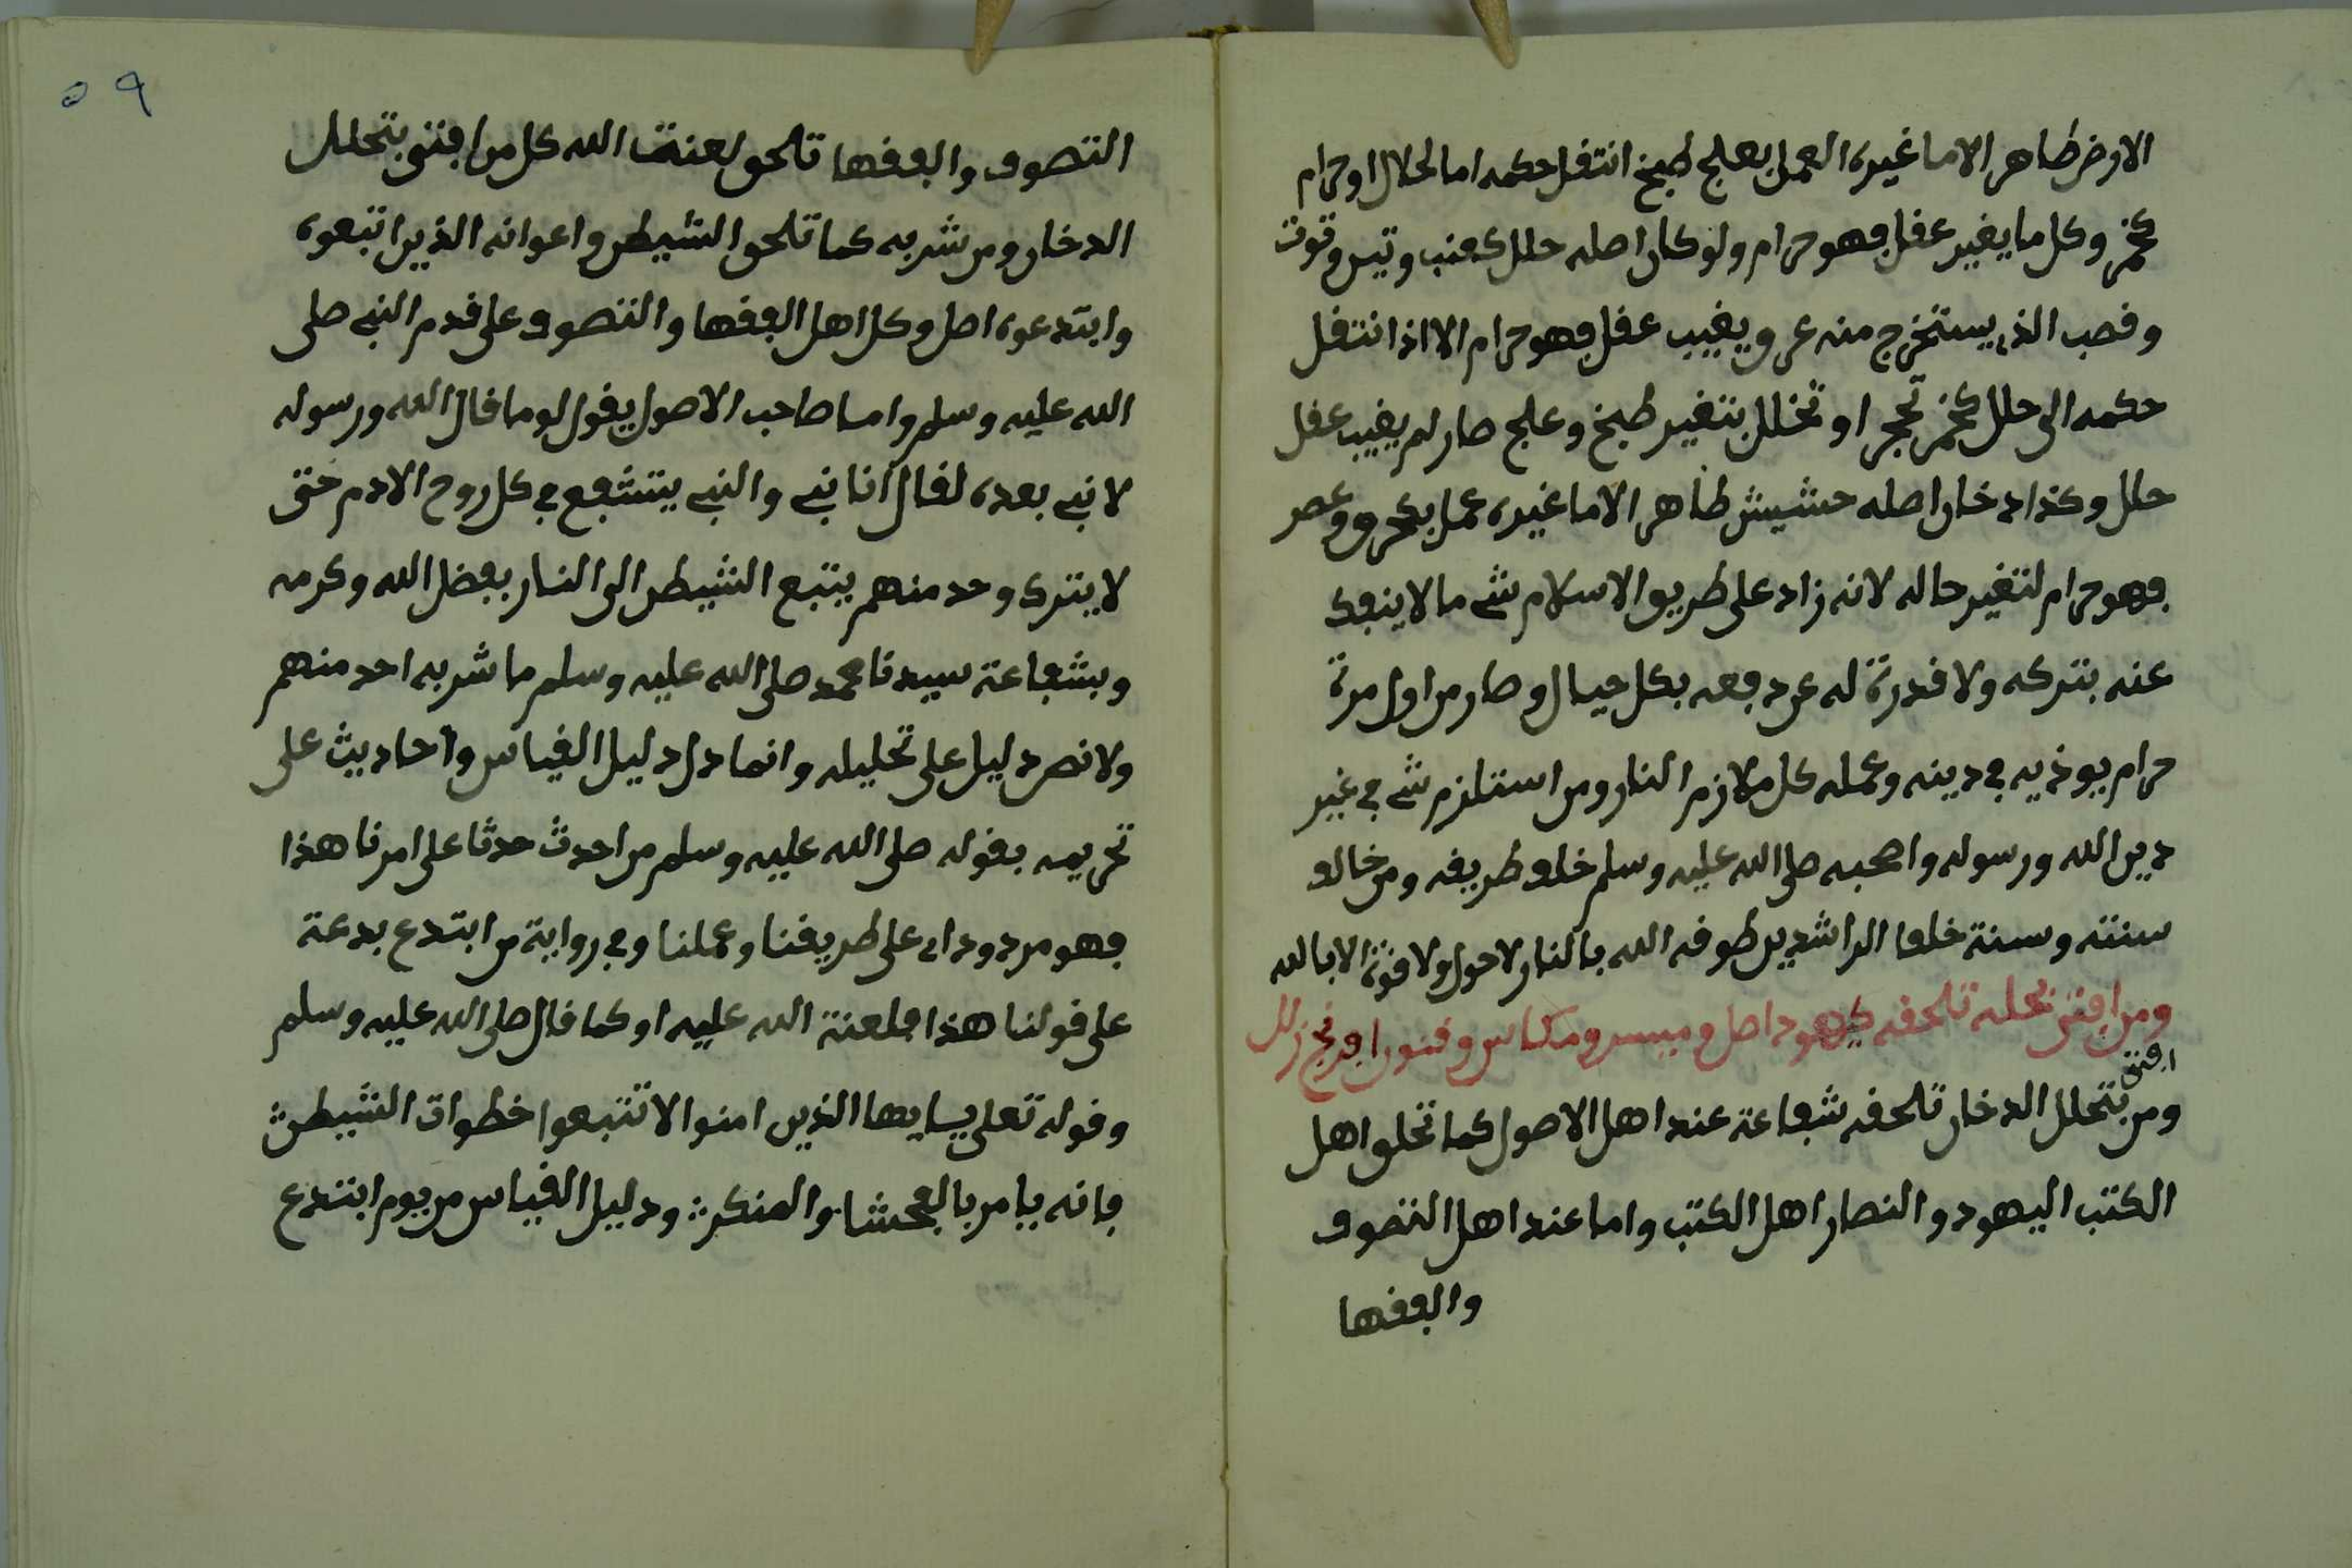 الارض طاهر الا ما غيره العمل بعلج طبخ انتقل حكمه اما لحلال او حرام
كخمر وكل ما يغير عقل فهو حرام ولو كان اصله حلل كعنب وتين وقوت
وقصب الذي يستخرج منه عرق يغيب عقل فهو حرام الا اذا انتقل
حكمه الى حلل كخمر تحجر او تخلل بتغير طبخ وعلج صار لم يغيب عقل
حلل وكذا دخان اصله حشيش طاهر الا ما غيره عمل بكحرق وعصر
فهو حرام لتغير حاله لانه زاد على طريق الاسلام شي ما لا ينفك
عنه بتركه ولا قدرة له عن دفعه بكل حيال وصار من اول مرة
حرام يوذيه في دينه وعمله كل ملازم النار ومن استلزم شي في غير
دين الله ورسوله واصحبه صلى الله عليه وسلم خلف طريقه ومن خالف
سنته وسنة خلفا الراشدين طوقه الله بالنار لا حول ولا قوة الا بالله
ومن افتى بحله تلحقه كيهود اصل وميسر ومكاس وفنون افرنج زلل
افتى
ومن بتحلل الدخان تلحقه شفاعة عند اهل الاصول كما تخلف اهل
الكتب اليهود والنصار اهل الكتب واما عند اهل التصوف
والفقها
٥٩
التصوف والفقها تلحق لعنت الله كل من افتى بتحلل
الدخان ومن شربه كما تلحق الشيطن واعوانه الذين اتبعوه
وابتدعوه اصل وكل اهل الفقها والتصوف على قدم النبي صلى
الله عليه وسلم واما صاحب الاصول يقول لو ما قال الله ورسوله
لا نبي بعده لقال انا نبي والنبي يتشفع في كل روح الادم حتى
لا يترك وحد منهم يتبع الشيطن الى النار بفضل الله وكرمه
وبشفاعة سيدنا محمد صلى الله عليه وسلم ما شربه احد منهم
ولا نص دليل على تحليله وانما دل دليل القياس واحاديث على
تحريمه بقوله صلى الله عليه وسلم من احدث حدثا على امرنا هذا
فهو مردود اي على طريقنا وعملنا وفي رواية من ابتدع بدعة
على قولنا هذا فلعنة الله عليه او كما قال صلى الله عليه وسلم
وقوله تعلى يايها الذين امنوا لا تتبعوا خطوات الشيطن
فانه يامر بالفحشا والمنكر ودليل القياس من يوم ابتدع